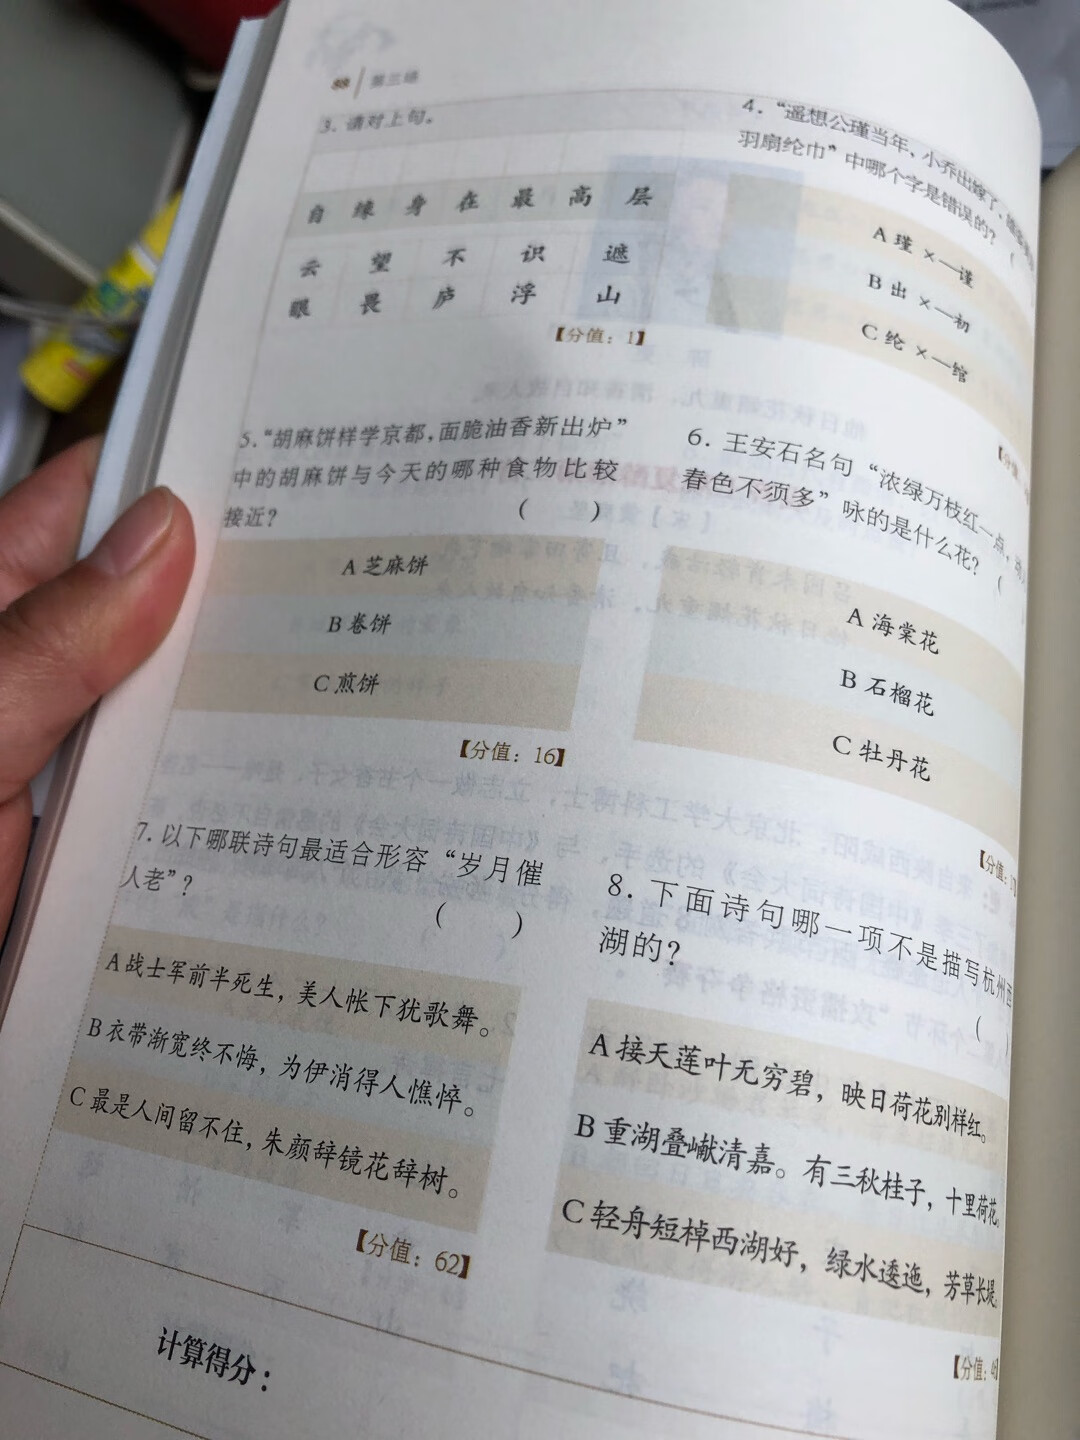 88 第三场
3. 请对上句。
自 缘 身 在 最 高 层
云 望 不 识 遮
眼 畏 庐 浮 山
【分值：1】
4. “遥想公瑾当年，小乔出嫁了，
羽扇纶巾”中哪个字是错误的？ (
A 瑾 ×—谨
B 出 ×—初
C 纶 ×—绾
【分值
5. “胡麻饼样学京都，面脆油香新出炉”
中的胡麻饼与今天的哪种食物比较
接近？ ( )
A 芝麻饼
B 卷饼
C 煎饼
【分值：16】
6. 王安石名句“浓绿万枝红一点，动
春色不须多”咏的是什么花？ (
A 海棠花
B 石榴花
C 牡丹花
【分值：
7. 以下哪联诗句最适合形容“岁月催
人老”？ ( )
A 战士军前半死生，美人帐下犹歌舞。
B 衣带渐宽终不悔，为伊消得人憔悴。
C 最是人间留不住，朱颜辞镜花辞树。
【分值：62】
8. 下面诗句哪一项不是描写杭州西
湖的？ (
A 接天莲叶无穷碧，映日荷花别样红。
B 重湖叠巘清嘉。有三秋桂子，十里荷花。
C 轻舟短棹西湖好，绿水逶迤，芳草长堤。
【分值：
计算得分：